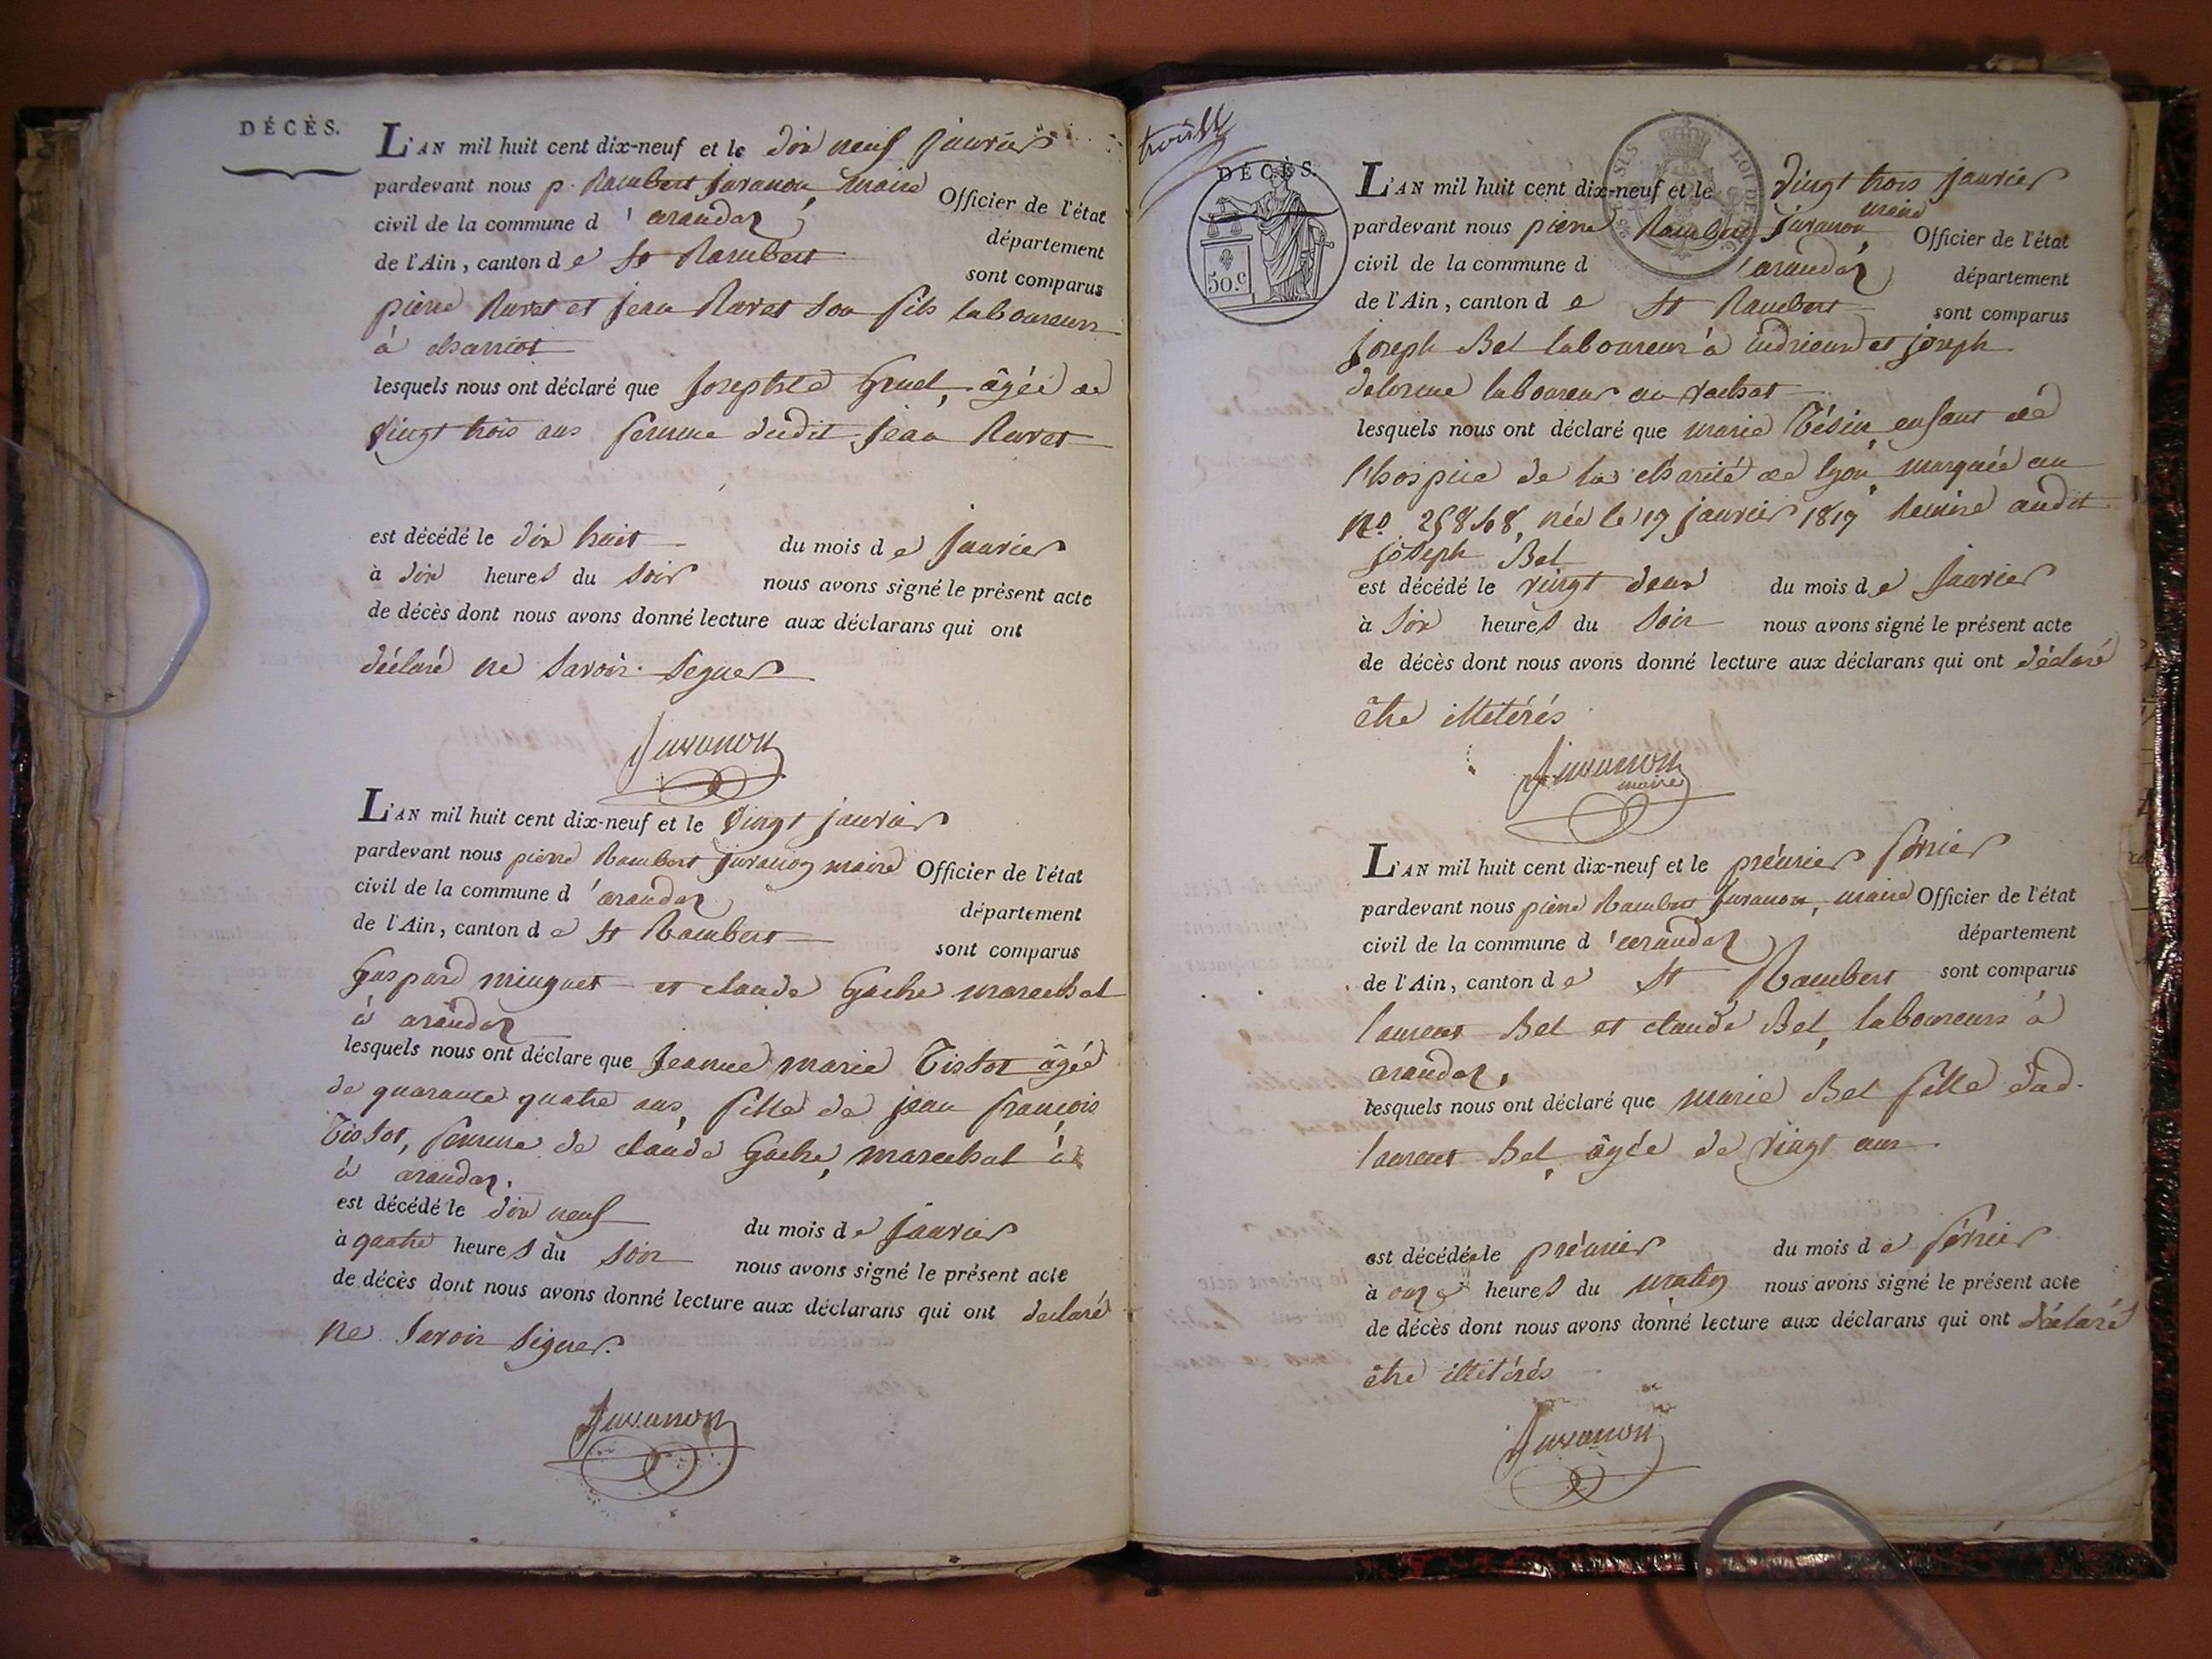 DÉCÈS.
L'AN mil huit cent dix-neuf et le dix neuf janvier
pardevant nous p. Rambert juvanon, maire Officier de l'état
civil de la commune d'arandaz, département
de l'Ain, canton de St Rambert sont comparus
pierre Ravet et jean Ravet son fils laboureurs
à charriot
lesquels nous ont déclaré que josephte Gruel, âgée de
vingt trois ans femme dudit jean Ravet
est décédé le dix huit du mois de janvier
à dix heures du soir nous avons signé le présent acte
de décès dont nous avons donné lecture aux déclarans qui ont
déclaré ne savoir signer
Juvanon
L'AN mil huit cent dix-neuf et le vingt janvier
pardevant nous pierre Rambert juvanon maire Officier de l'état
civil de la commune d'arandaz département
de l'Ain, canton de St Rambert sont comparus
Gaspard minguet et claude Gache marechal
à arandaz
lesquels nous ont déclaré que jeanne marie Tissot âgée
de quarante quatre ans, fille de jean françois
Tissot, femme de claude Gache, marechal à
à arandaz.
est décédé le dix neuf du mois de janvier
à quatre heures du soir nous avons signé le présent acte
de décès dont nous avons donné lecture aux déclarans qui ont declaré
ne savoir signer.
Juvanon
DÉCÈS.
50.c
L'AN mil huit cent dix-neuf et le vingt trois janvier
pardevant nous pierre Rambert juvanon maire, Officier de l'état
civil de la commune d'arandaz département
de l'Ain, canton de St Rambert sont comparus
joseph Bel laboureur à indrieux et joseph
delorme laboureur au vachat
lesquels nous ont déclaré que marie Tésin, enfant de
l'hospice de la charité de lyon, marquée au
no. née le 17 janvier 1817 remise audit
joseph Bel
est décédé le vingt deux du mois de janvier
à dix heures du soir nous avons signé le présent acte
de décès dont nous avons donné lecture aux déclarans qui ont déclaré
être illetérés
Juvanon
maire
L'AN mil huit cent dix-neuf et le prémier février
pardevant nous pierre Rambert juvanon, maire Officier de l'état
civil de la commune d'arandaz département
de l'Ain, canton de St Rambert sont comparus
laurent Bel et claude Bel, laboureurs à
arandaz,
lesquels nous ont déclaré que marie Bel fille dud.
laurent Bel, âgée de vingt ans
est décédée le prémier du mois de février
à onze heures du matin nous avons signé le présent acte
de décès dont nous avons donné lecture aux déclarans qui ont déclaré
être illitérés
Juvanon